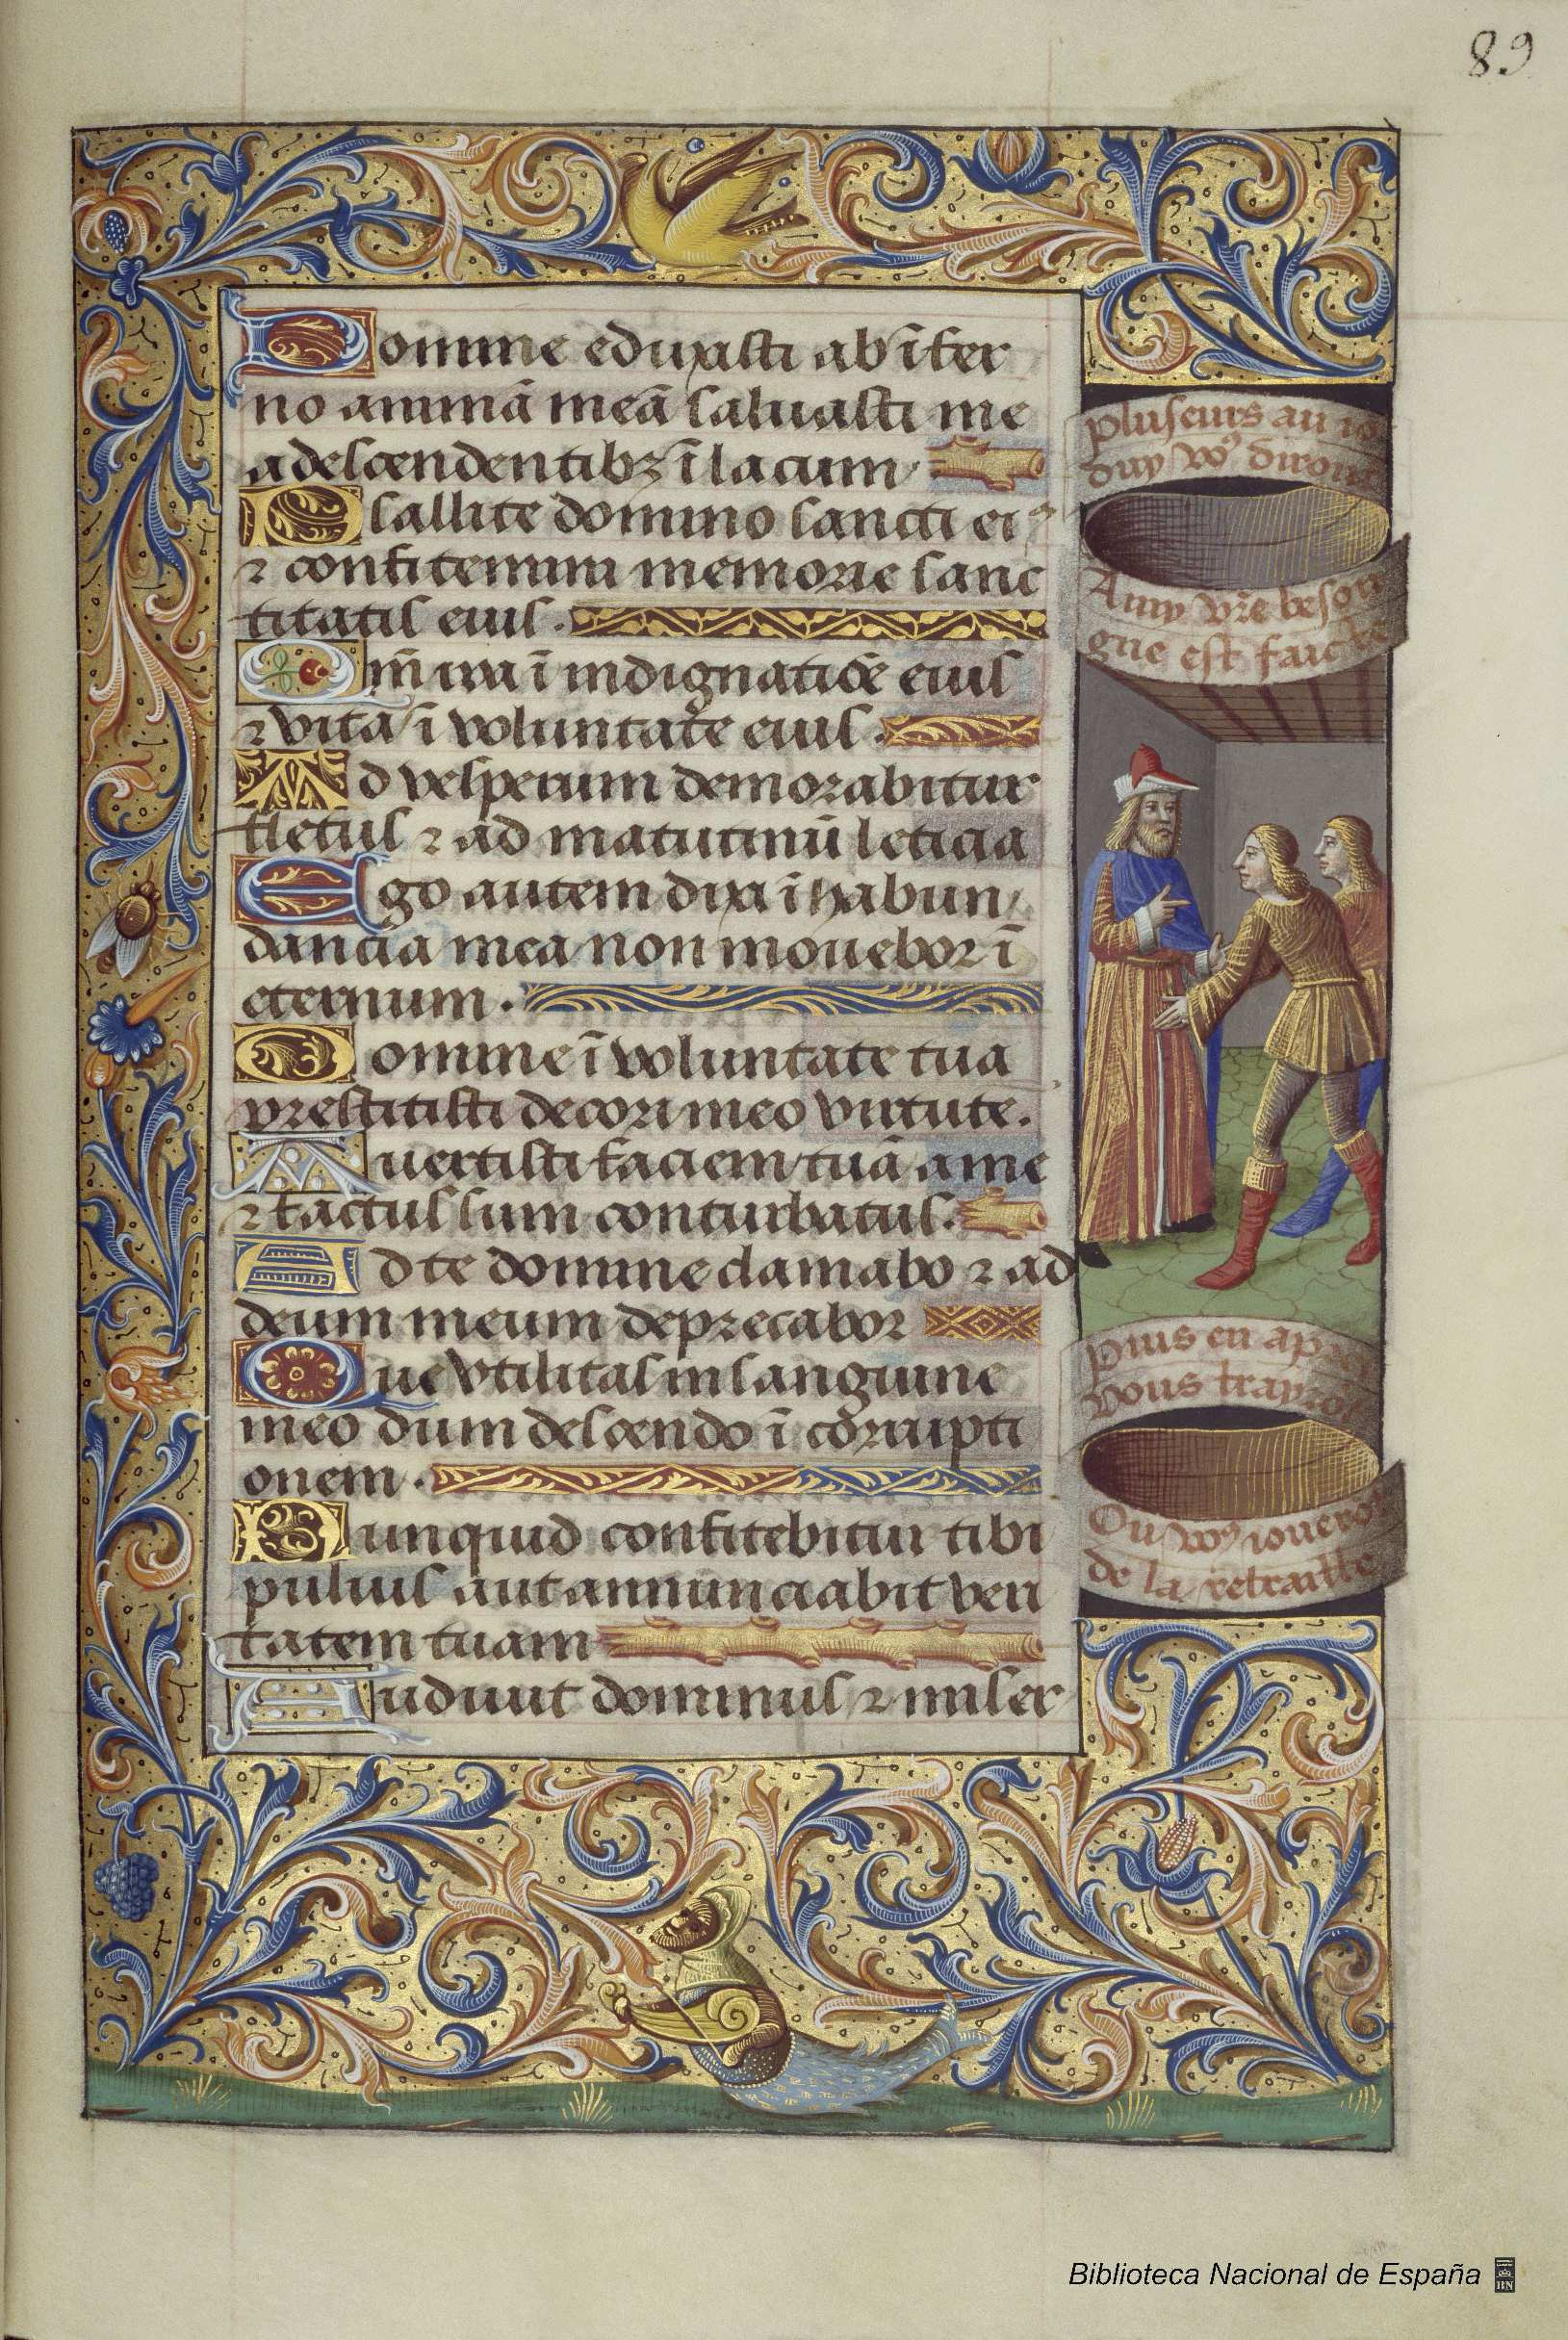 89
Domine eduxasti ab īfer
no animā meā saluasti me
a descendentibꝫ ī lacum
Psallite domino sancti eiꝰ
⁊ confitemini memorie sanc
titatis eius.
Qm̄ ira ī indignatiōe eius
⁊ vita ī voluntate eius.
Ad vesperum demorabitur
fletus ⁊ ad matutinū leticia
Ego autem dixi ī habun
dancia mea non mouebor ī
eternum.
Domine ī voluntate tua
prestitisti decori meo virtute.
Auertisti faciem tuā a me
⁊ factus sum conturbatus.
Ad te domine clamabo ⁊ ad
deum meum deprecabor
Que vtilitas in sanguine
meo dum descendo ī corrupti
onem.
Nunquid confitebitur tibi
puluis aut annunciabit veri
tatem tuam
Audiuit dominus ⁊ miser
pluseurs au
duy voꝰ diront
Amy vr̄e beson
gne est faicte
Puis en
vous
Ou voꝰ
de la retraitte
Biblioteca Nacional de España
BN